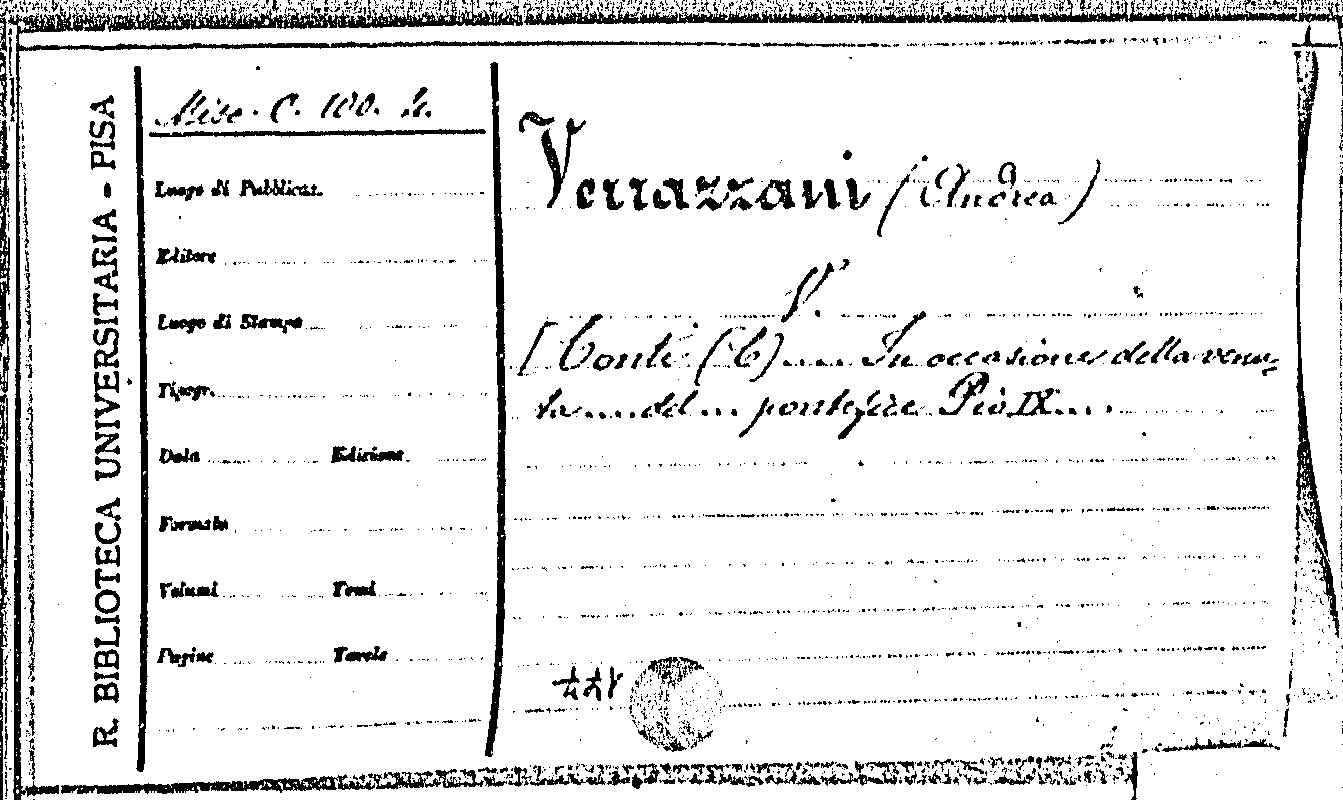 R. BIBLIOTECA UNIVERSITARIA - PISA
Misc. C. 100. 4.
Luogo di Pubblicaz.
Editore
Luogo di Stampa
Tipogr.
Data Edizione
Formato
Volumi Tomi
Pagine Tavole
Verrazzani (Andrea)
V.
[Conti (C).... In occasione della venu-
ta.... del... pontefice Pio IX....